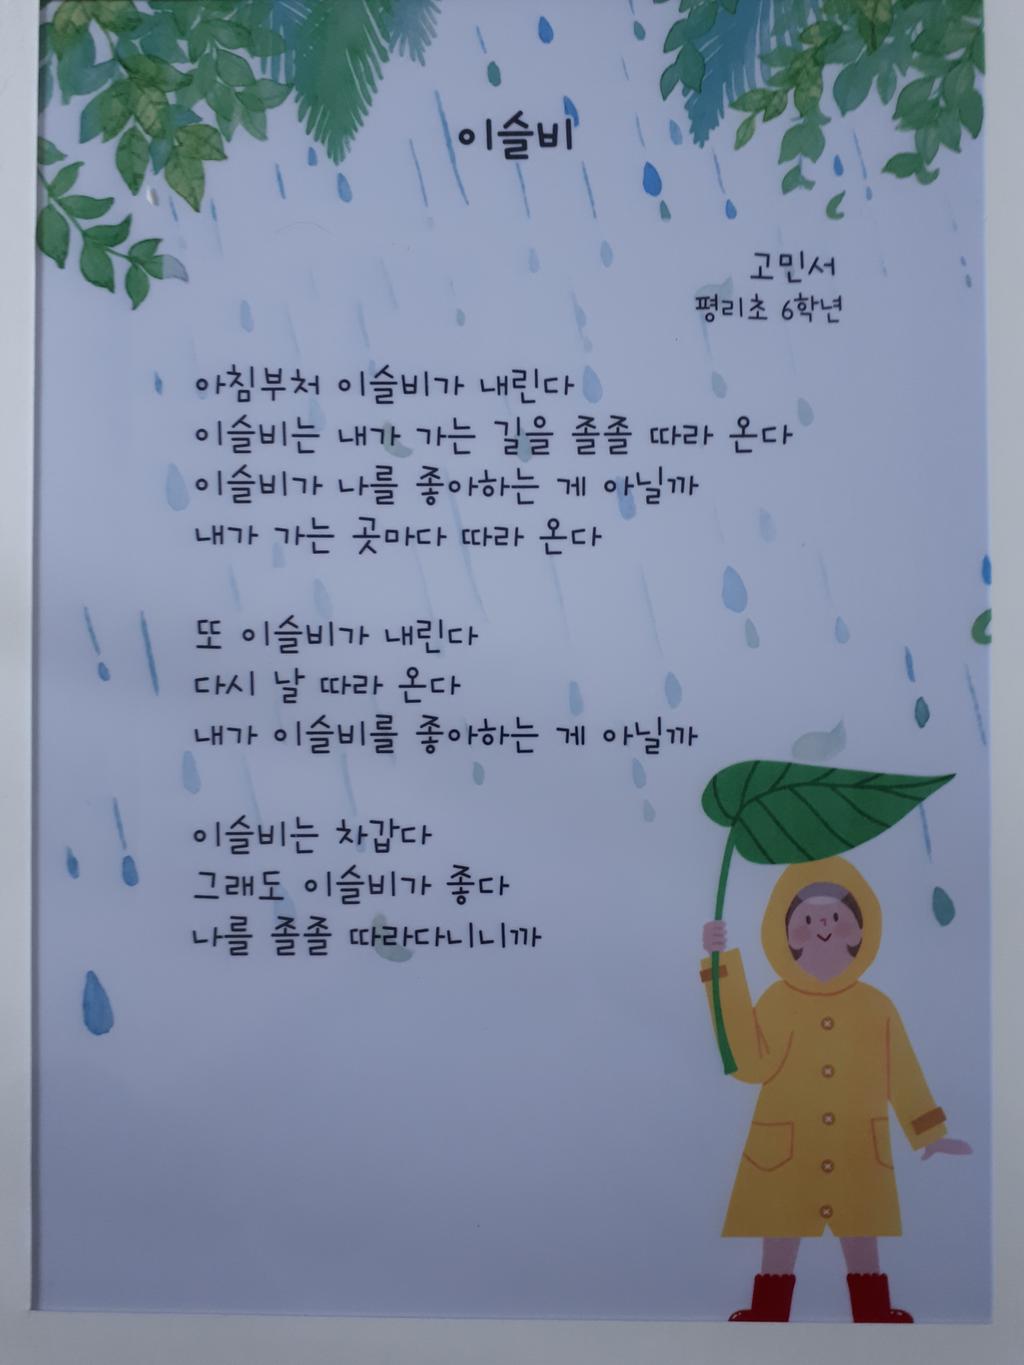 이슬비
고민서
평리초 6학년
아침부처 이슬비가 내린다
이슬비는 내가 가는 길을 졸졸 따라 온다
이슬비가 나를 좋아하는 게 아닐까
내가 가는 곳마다 따라 온다
또 이슬비가 내린다
다시 날 따라 온다
내가 이슬비를 좋아하는 게 아닐까
이슬비는 차갑다
그래도 이슬비가 좋다
나를 졸졸 따라다니니까